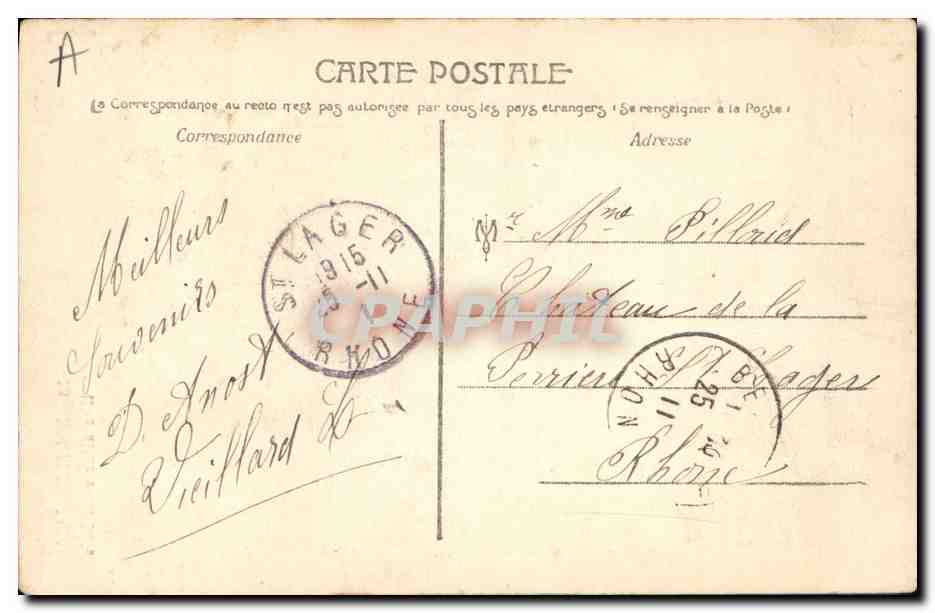 A
CARTE POSTALE
La Correspondance au recto n'est pas autorisée par tous les pays étrangers (Se renseigner à la Poste)
Correspondance
Adresse
Meilleurs
Souvenirs
D'Anost
Vieillard
ST LAGER
1915
25 -11
RHONE
CPAPHIL
Mr Mme Pillard
Chateau de la
Perriere St Lager
Rhone
25
11
RHON